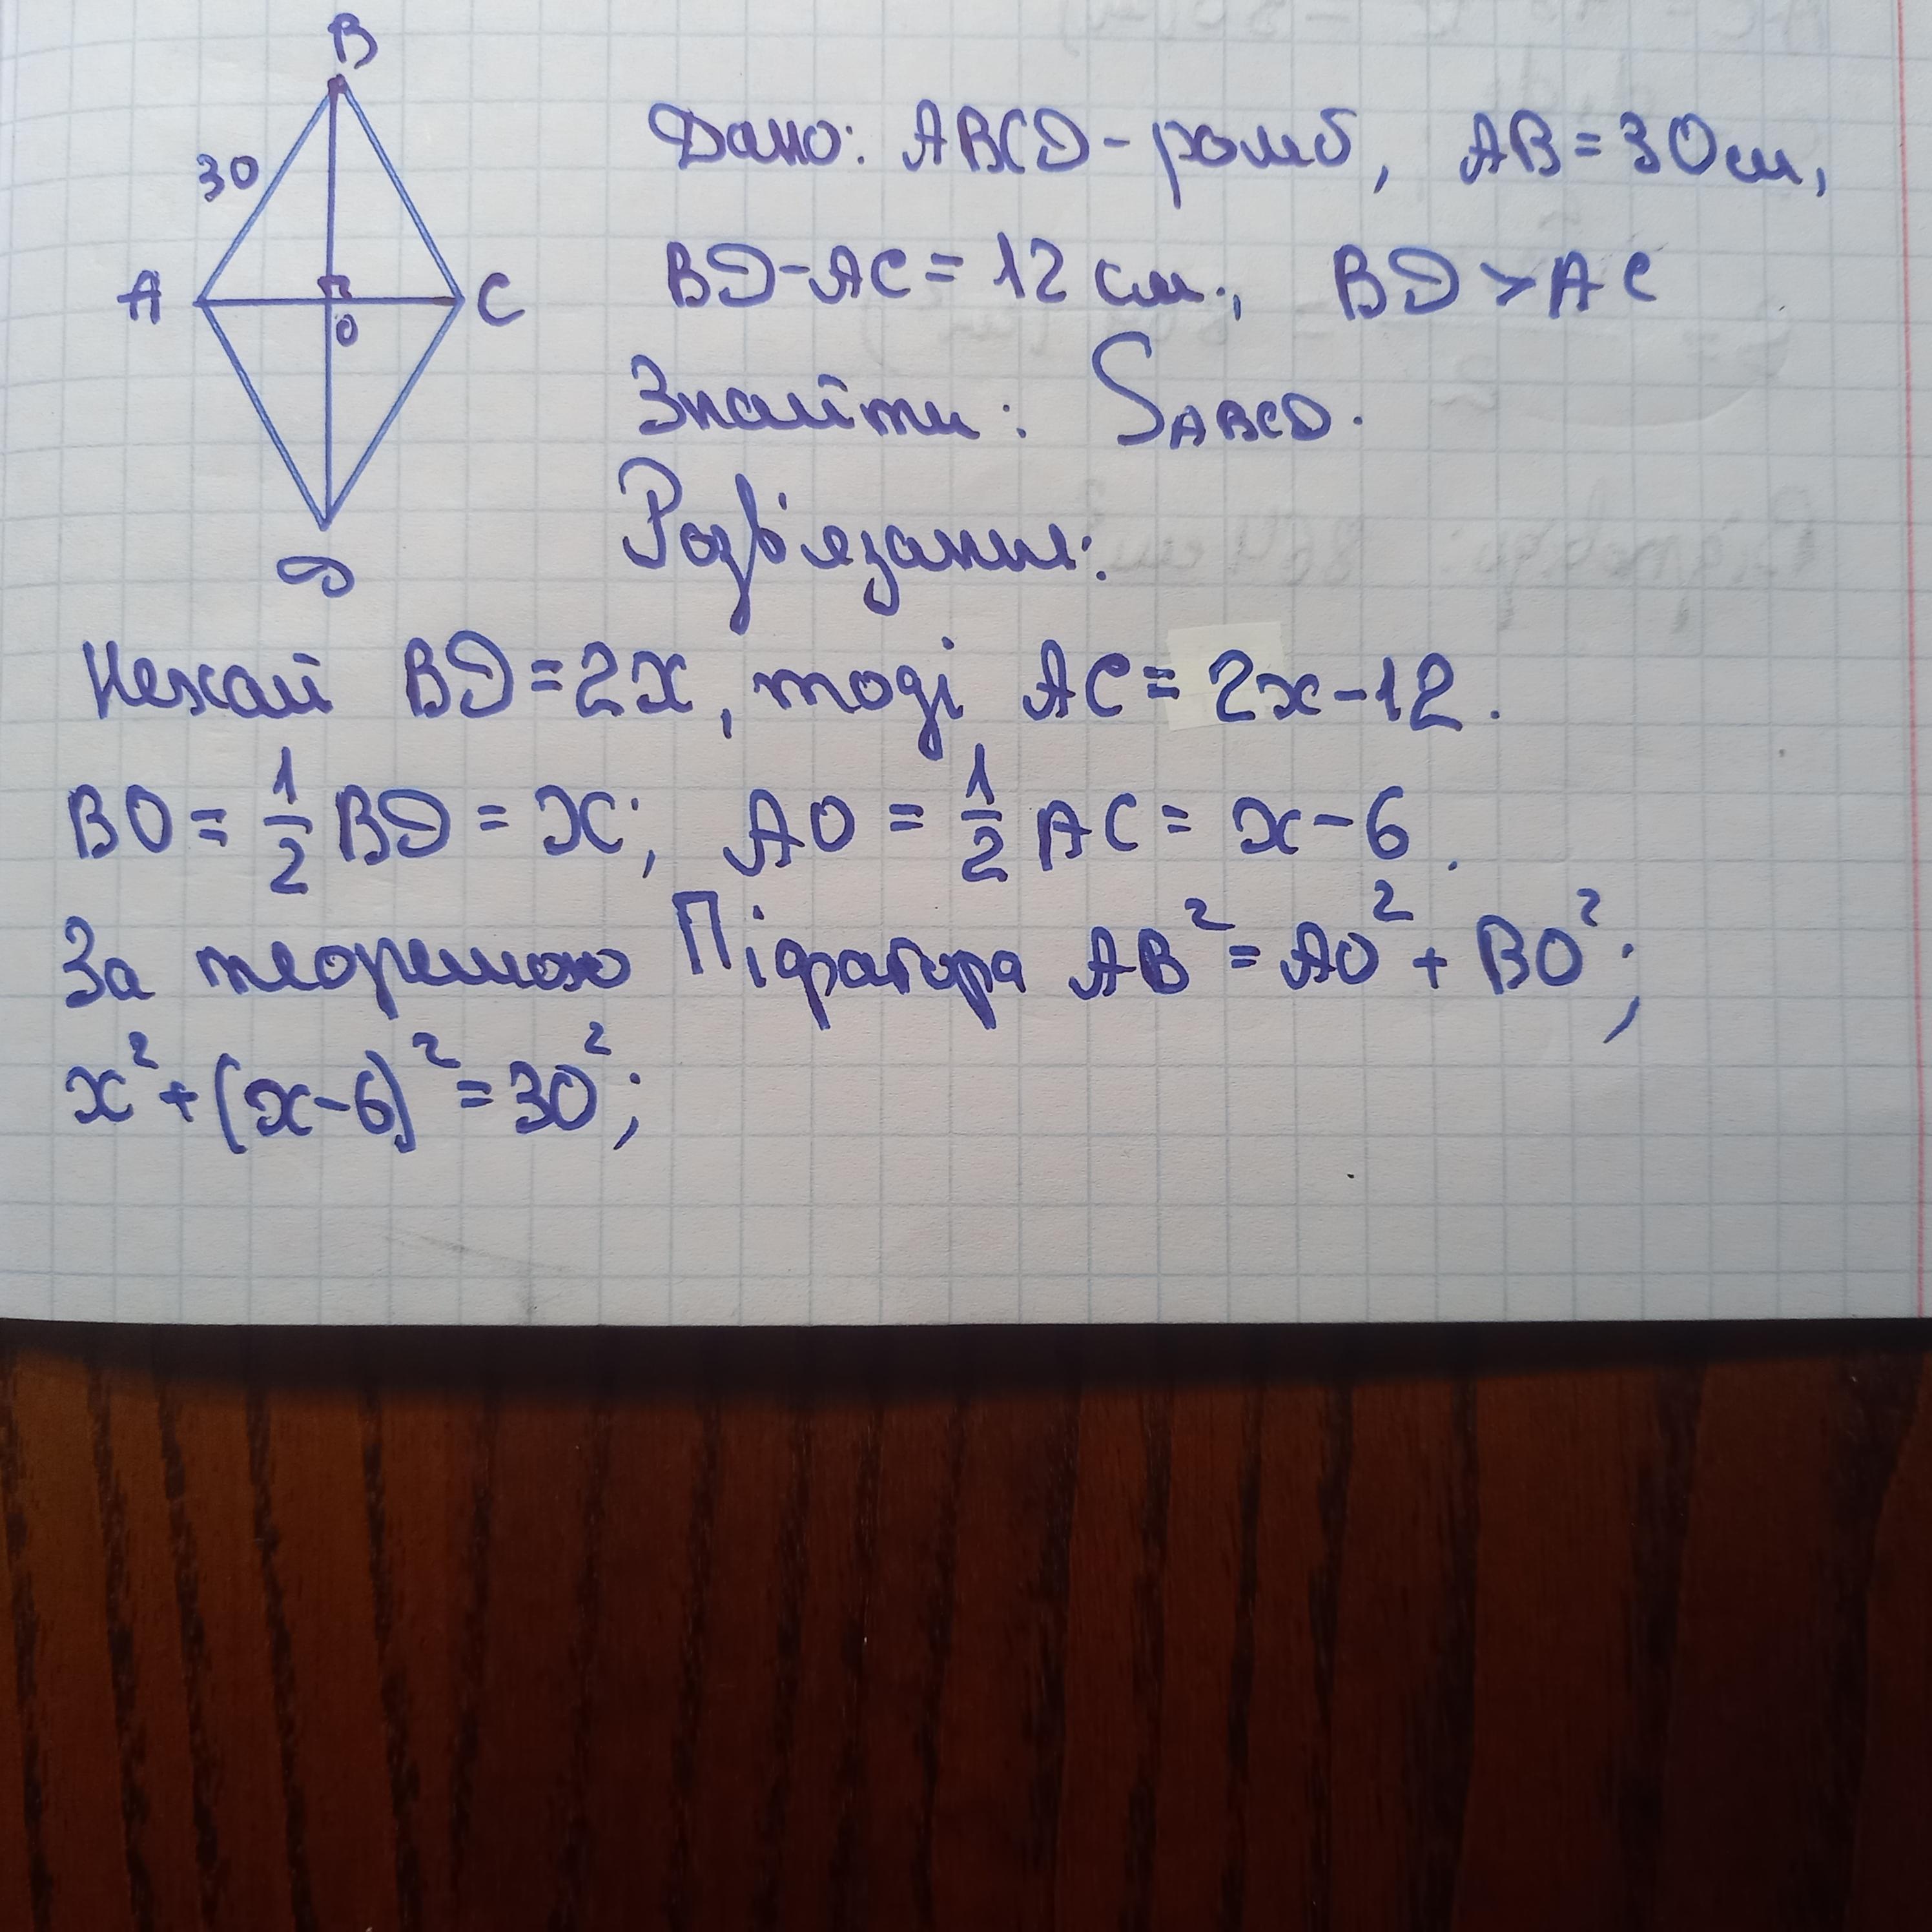 B
30
A
C
O
D
Дано: ABCD - ромб, AB = 30 см,
BD - AC = 12 см., BD > AC
Знайти: S_ABCD.
Розв'язання:
Нехай BD = 2x, тоді AC = 2x - 12.
BO = 1/2 BD = x; AO = 1/2 AC = x - 6.
За теоремою Піфагора AB² = AO² + BO²;
x² + (x - 6)² = 30²;